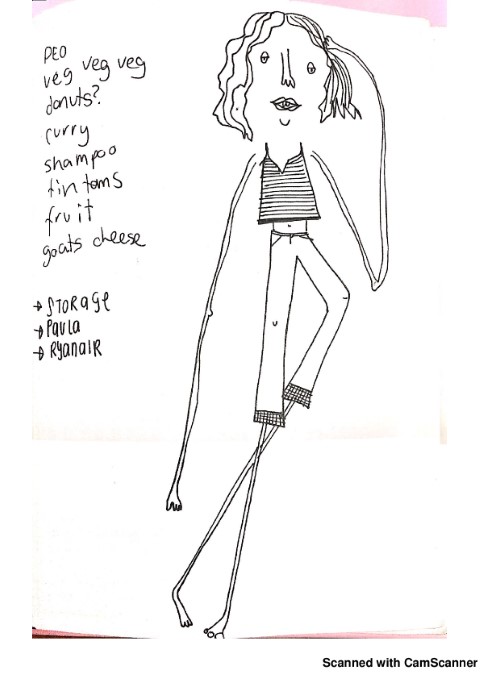 DEO
veg veg veg
donuts?
curry
shampoo
tin toms
fruit
goats cheese
→ STORAGE
→ PAULA
→ RYANAIR
Scanned with CamScanner